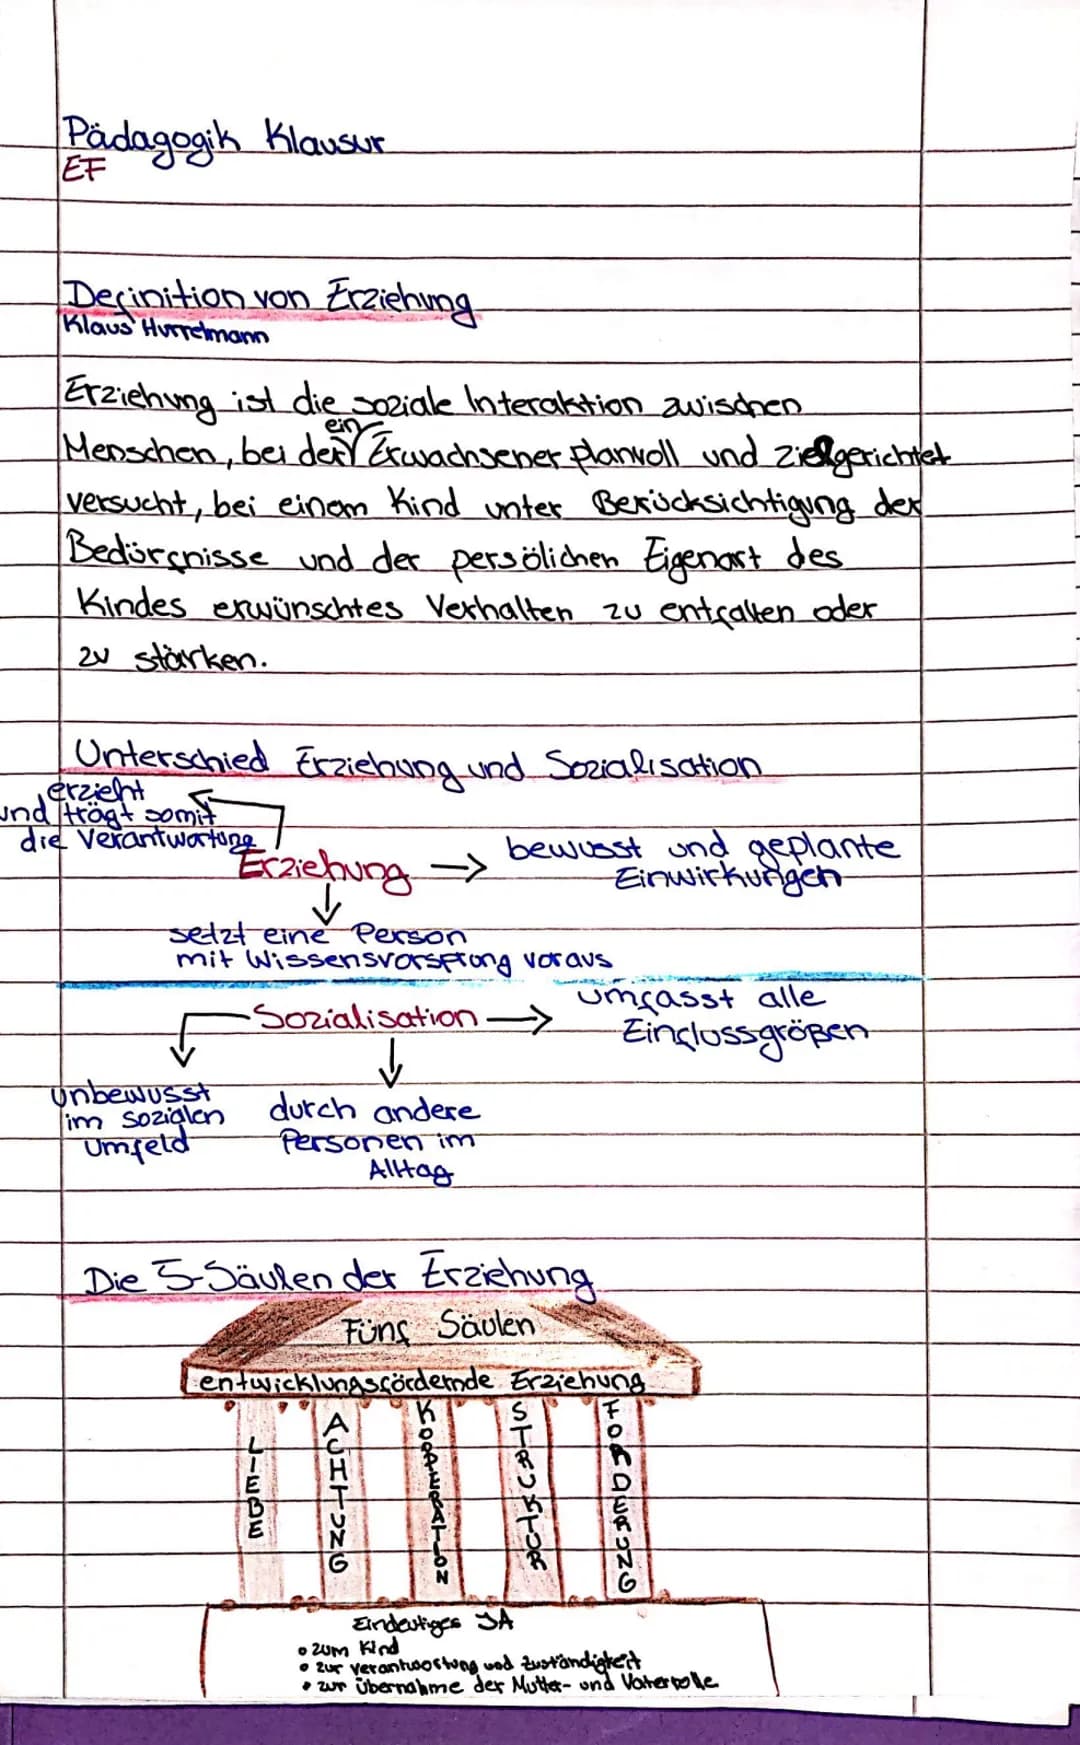 Pädagogik Klausur
EF
Definition von Erziehung
Klaus Hurrelmann
Erziehung ist die soziale Interaktion zwischen
Menschen, bei der ein Erwachsener planvoll und zielgerichtet
versucht, bei einem Kind unter Berücksichtigung der
Bedürfnisse und der persölichen Eigenart des
Kindes erwünschtes Verhalten zu entfalten oder
zu stärken.
Unterschied Erziehung und Sozialisation
erzieht
und trägt somit
die Verantwortung
Erziehung → bewusst und geplante
Einwirkungen
↓
setzt eine Person
mit Wissensvorsprong voraus
Sozialisation → umfasst alle
Einflussgrößen
unbewusst
im sozialen
Umfeld
durch andere
Personen im
Alltag
Die 5-Säulen der Erziehung
Fünf Säulen
entwicklungsfördernde Erziehung
LIEBE
ACHTUNG
KOOPERATION
STRUKTUR
FORDERUNG
Eindeutiges JA
• zum Kind
• zur Verantwortung und Zuständigkeit
• zur Übernahme der Mutter- und Vaterrolle